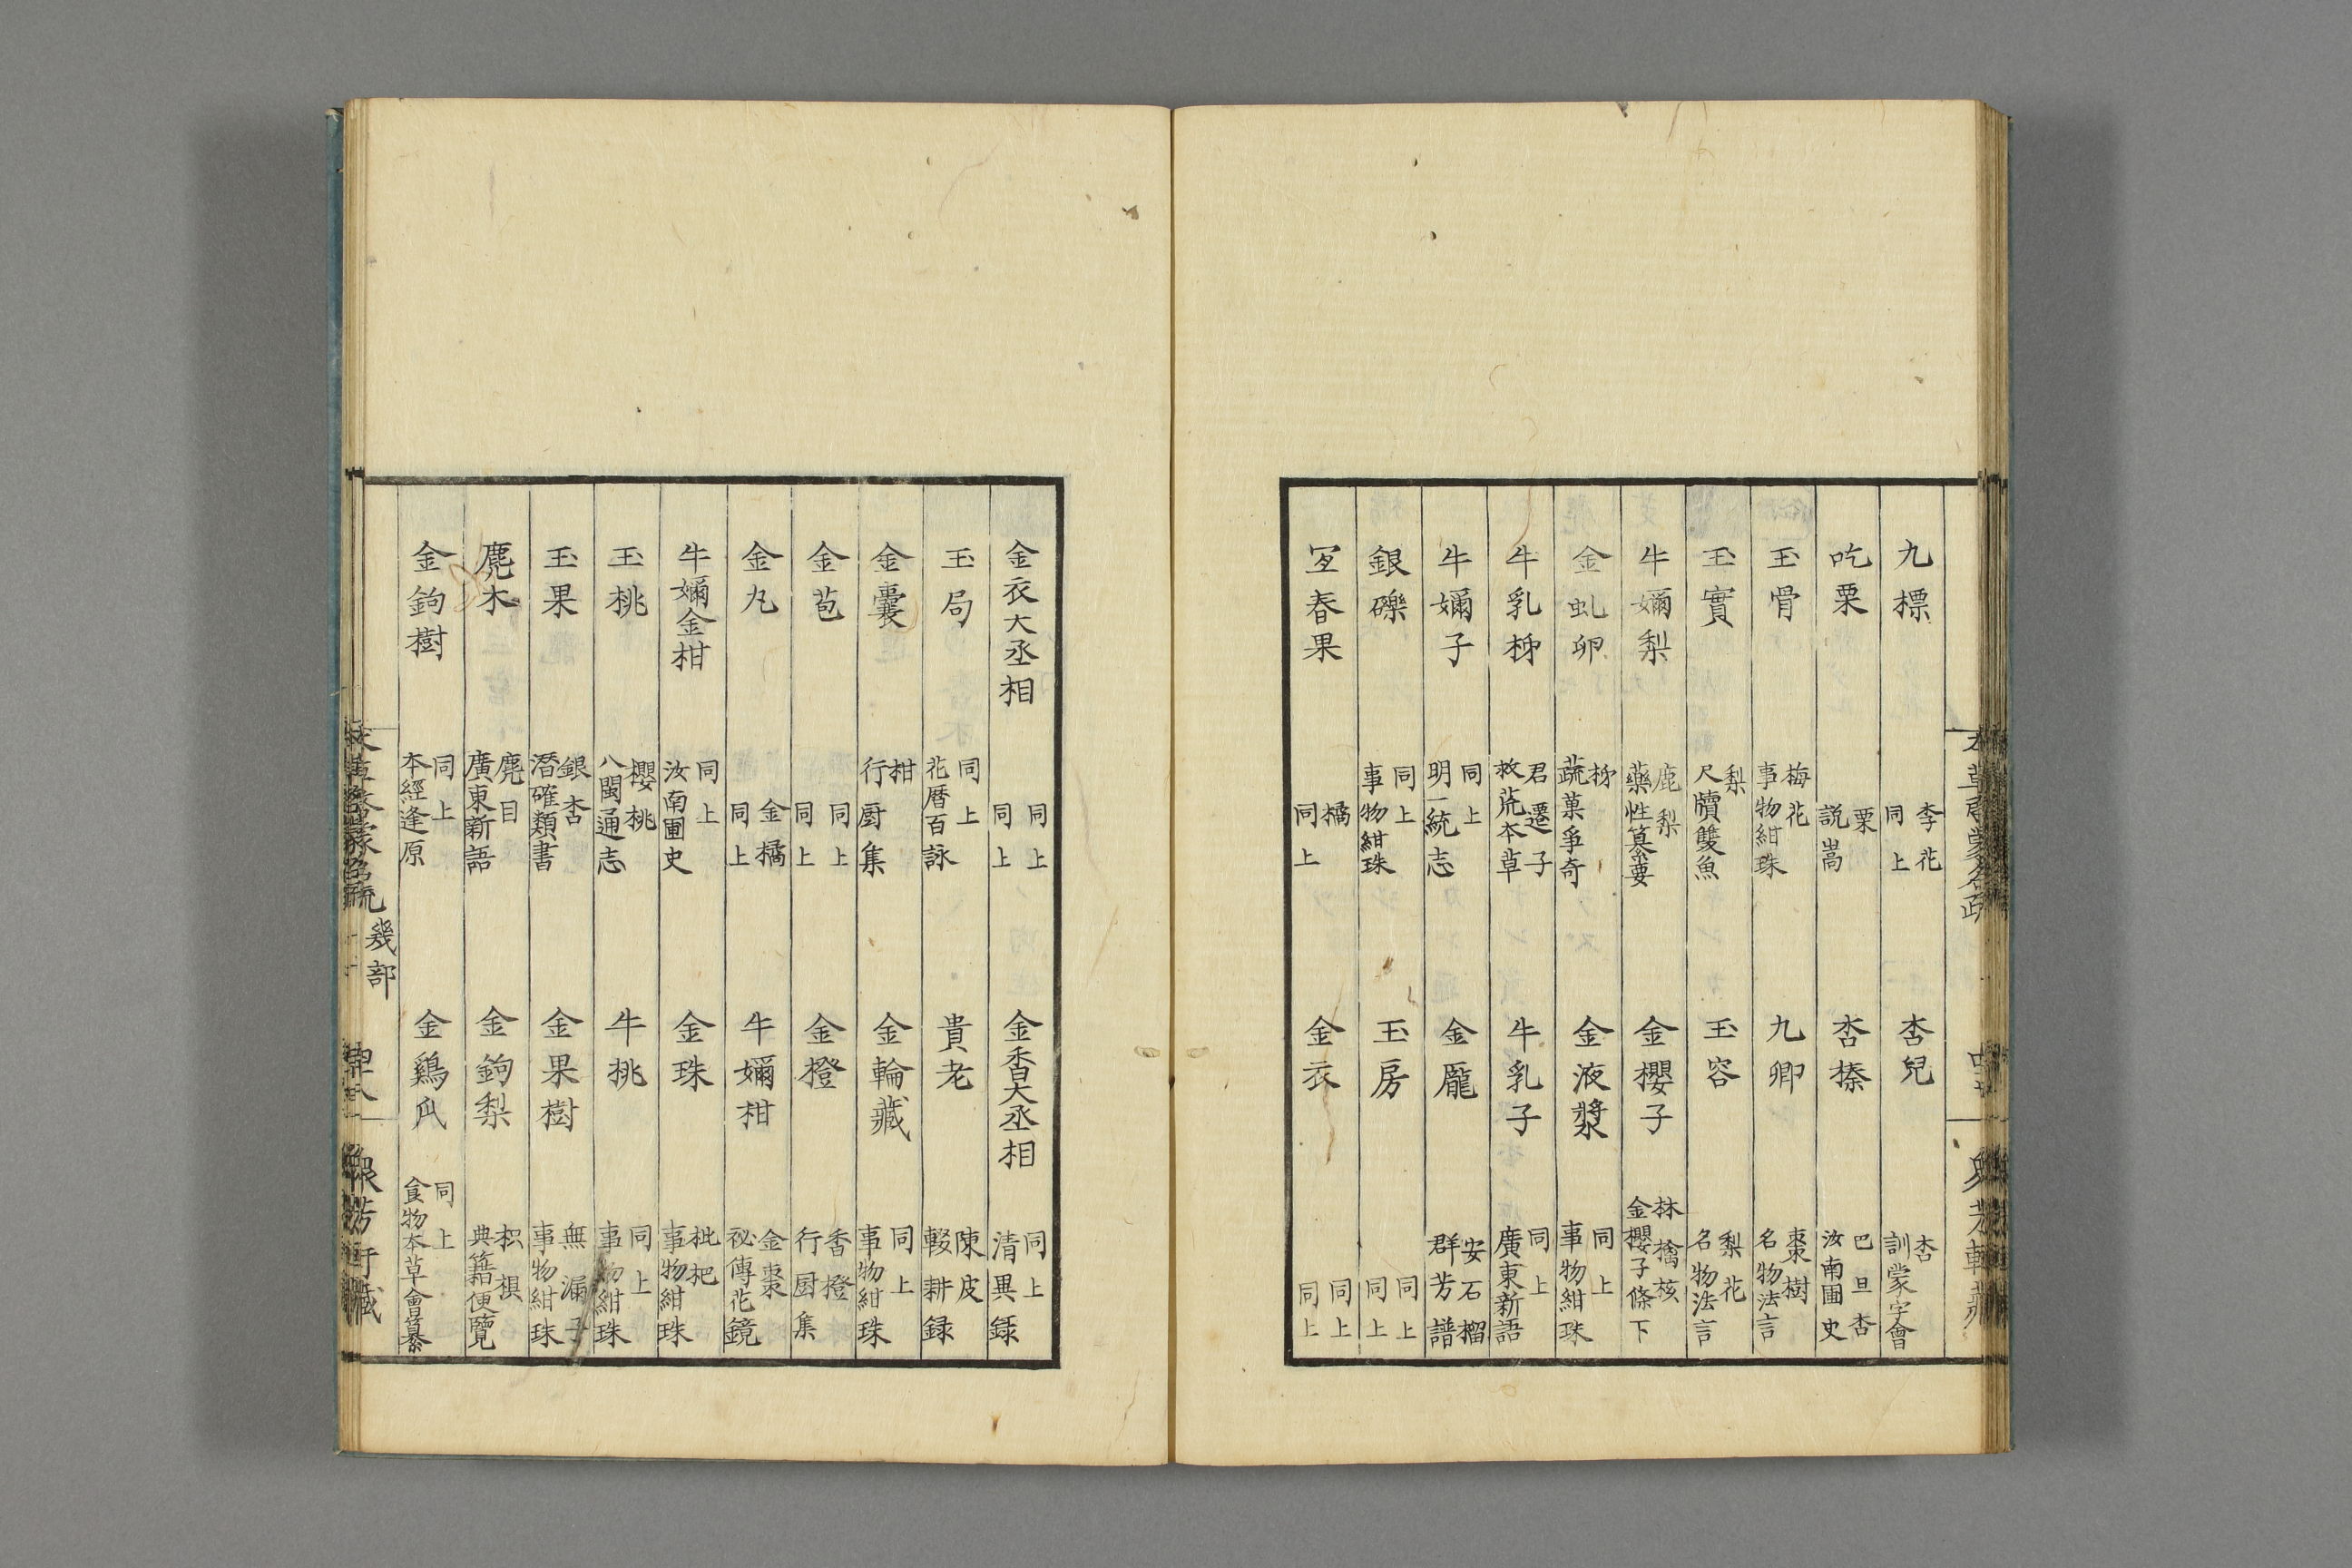 九標 李花 同上 杏兒 杏 訓蒙字會
吃栗 栗 説嵩 杏榛 巴旦杏 汝南圃史
玉骨 梅花 事物紺珠 九卿 棗樹 名物法言
玉實 梨 尺牘雙魚 玉容 梨花 名物法言
牛嬭梨 鹿梨 藥性纂要 金櫻子 林檎核 金櫻子條下
金虬卵 柹 蔬菓爭奇 金液漿 同上 事物紺珠
牛乳柹 君遷子 救荒本草 牛乳子 同上 廣東新語
牛嬭子 同上 明一統志 金龎 安石榴 群芳譜
銀礫 同上 事物紺珠 玉房 同上 同上
春果 橘 同上 金衣 同上 同上
金衣大丞相 同上 同上 金香大丞相 同上 清異錄
玉局 同上 花暦百詠 貴老 陳皮 輟耕録
金囊 柑 行厨集 金輪藏 同上 事物紺珠
金苞 同上 同上 金橙 香橙 行厨集
金丸 金橘 同上 牛嬭柑 金棗 祕傳花鏡
牛嬭金柑 同上 汝南圃史 金珠 枇杷 事物紺珠
玉桃 櫻桃 八閩通志 牛桃 同上 事物紺珠
玉果 銀杏 潛確類書 金果樹 無漏子 事物紺珠
麂木 麂目 廣東新語 金鉤梨 枳椇 典籍便覽
金鉤樹 同上 本經逢原 金鷄爪 同上 食物本草會纂
幾部